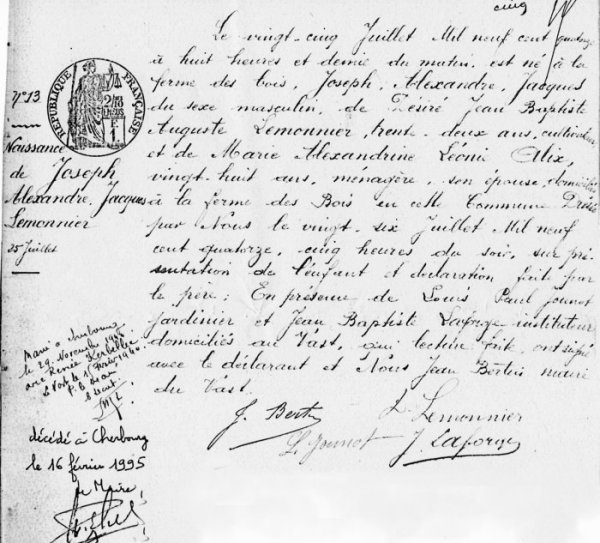 cinq
Le vingt-cinq Juillet Mil neuf cent quatorze
à huit heures et demie du matin, est né à la
ferme des bois, Joseph, Alexandre, Jacques
du sexe masculin, de Désiré Jean Baptiste
Auguste Lemonnier, trente-deux ans, cultivateur
et de Marie Alexandrine Léonie Alix,
vingt-huit ans, ménagère, son épouse, domiciliés
à la ferme des Bois en cette Commune Dressé
par Nous le vingt-six Juillet Mil neuf
cent quatorze, cinq heures du soir, sur pré-
sentation de l'enfant et déclaration faite par
le père; En présence de Louis Paul Jounot
jardinier et Jean Baptiste Laforge instituteur
domiciliés au Vast, qui lecture faite, ont signé
avec le déclarant et Nous Jean Bertin maire
du Vast.
J. Bertin
L. Lemonnier
L. Jounot
J. Laforge
N° 13
RÉPUBLIQUE FRANÇAISE
Naissance
de Joseph
Alexandre, Jacques
Lemonnier
25 Juillet
Marié à Cherbourg
le 29 Novembre
avec Renée
Le Vast le
décédé à Cherbourg
le 16 février 1995
Le Maire,